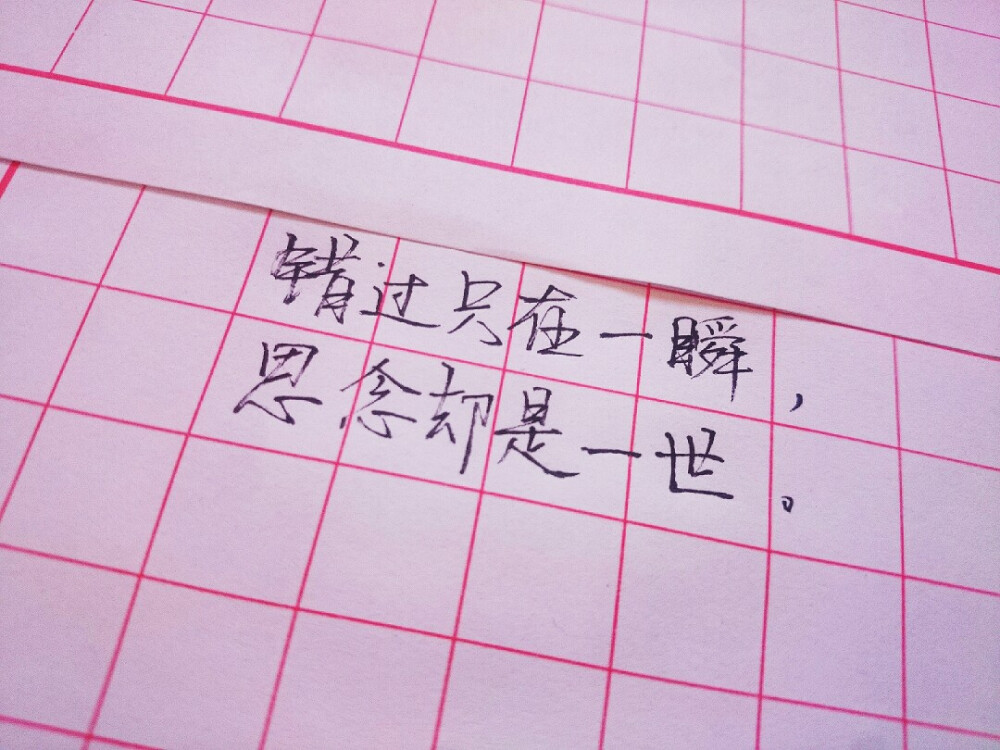 错过只在一瞬，
思念却是一世。